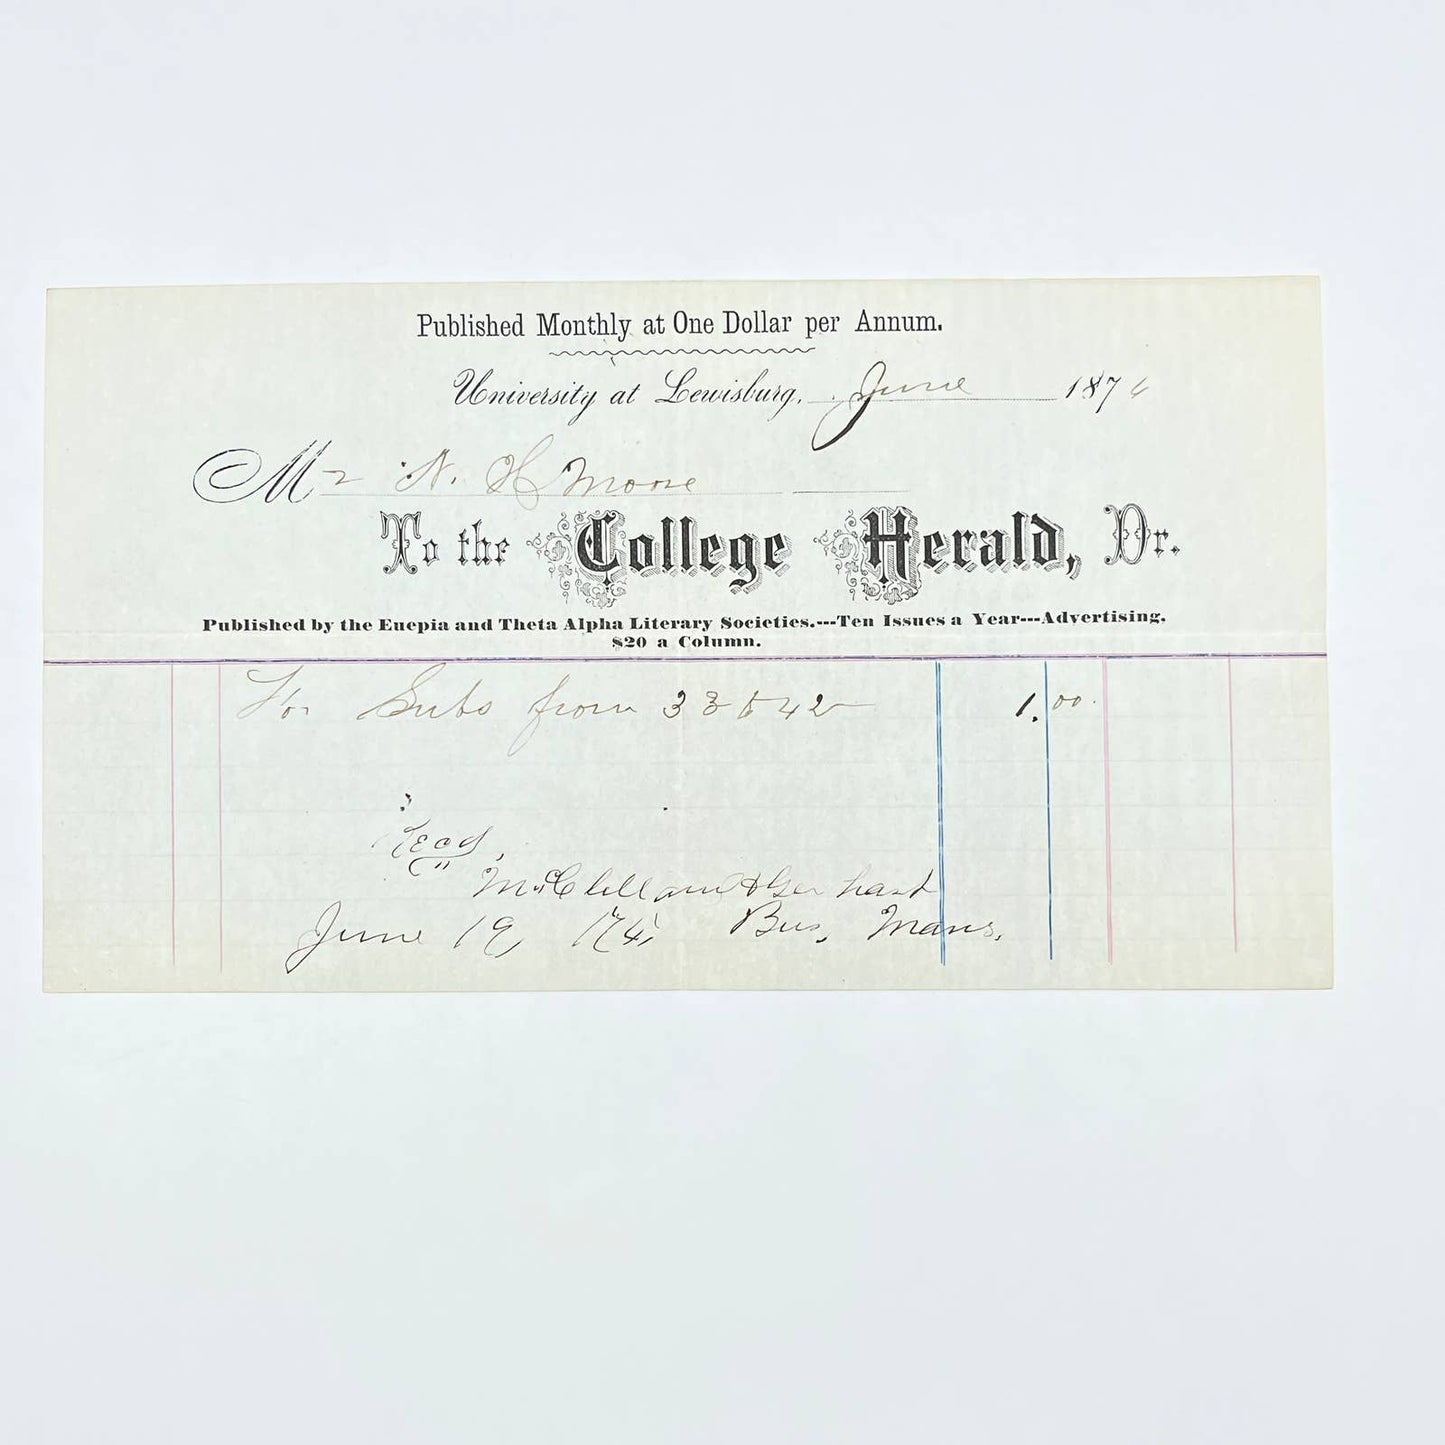 Published Monthly at One Dollar per Annum.
University at Lewisburg, June 187
Mr N. H Moore
To the College Herald, Dr.
Published by the Euepia and Theta Alpha Literary Societies.---Ten Issues a Year---Advertising,
$20 a Column.
For Subs from 33 to 42 1.00
Recd,
McClelland & Gerhart
June 19, Bus. Mans.